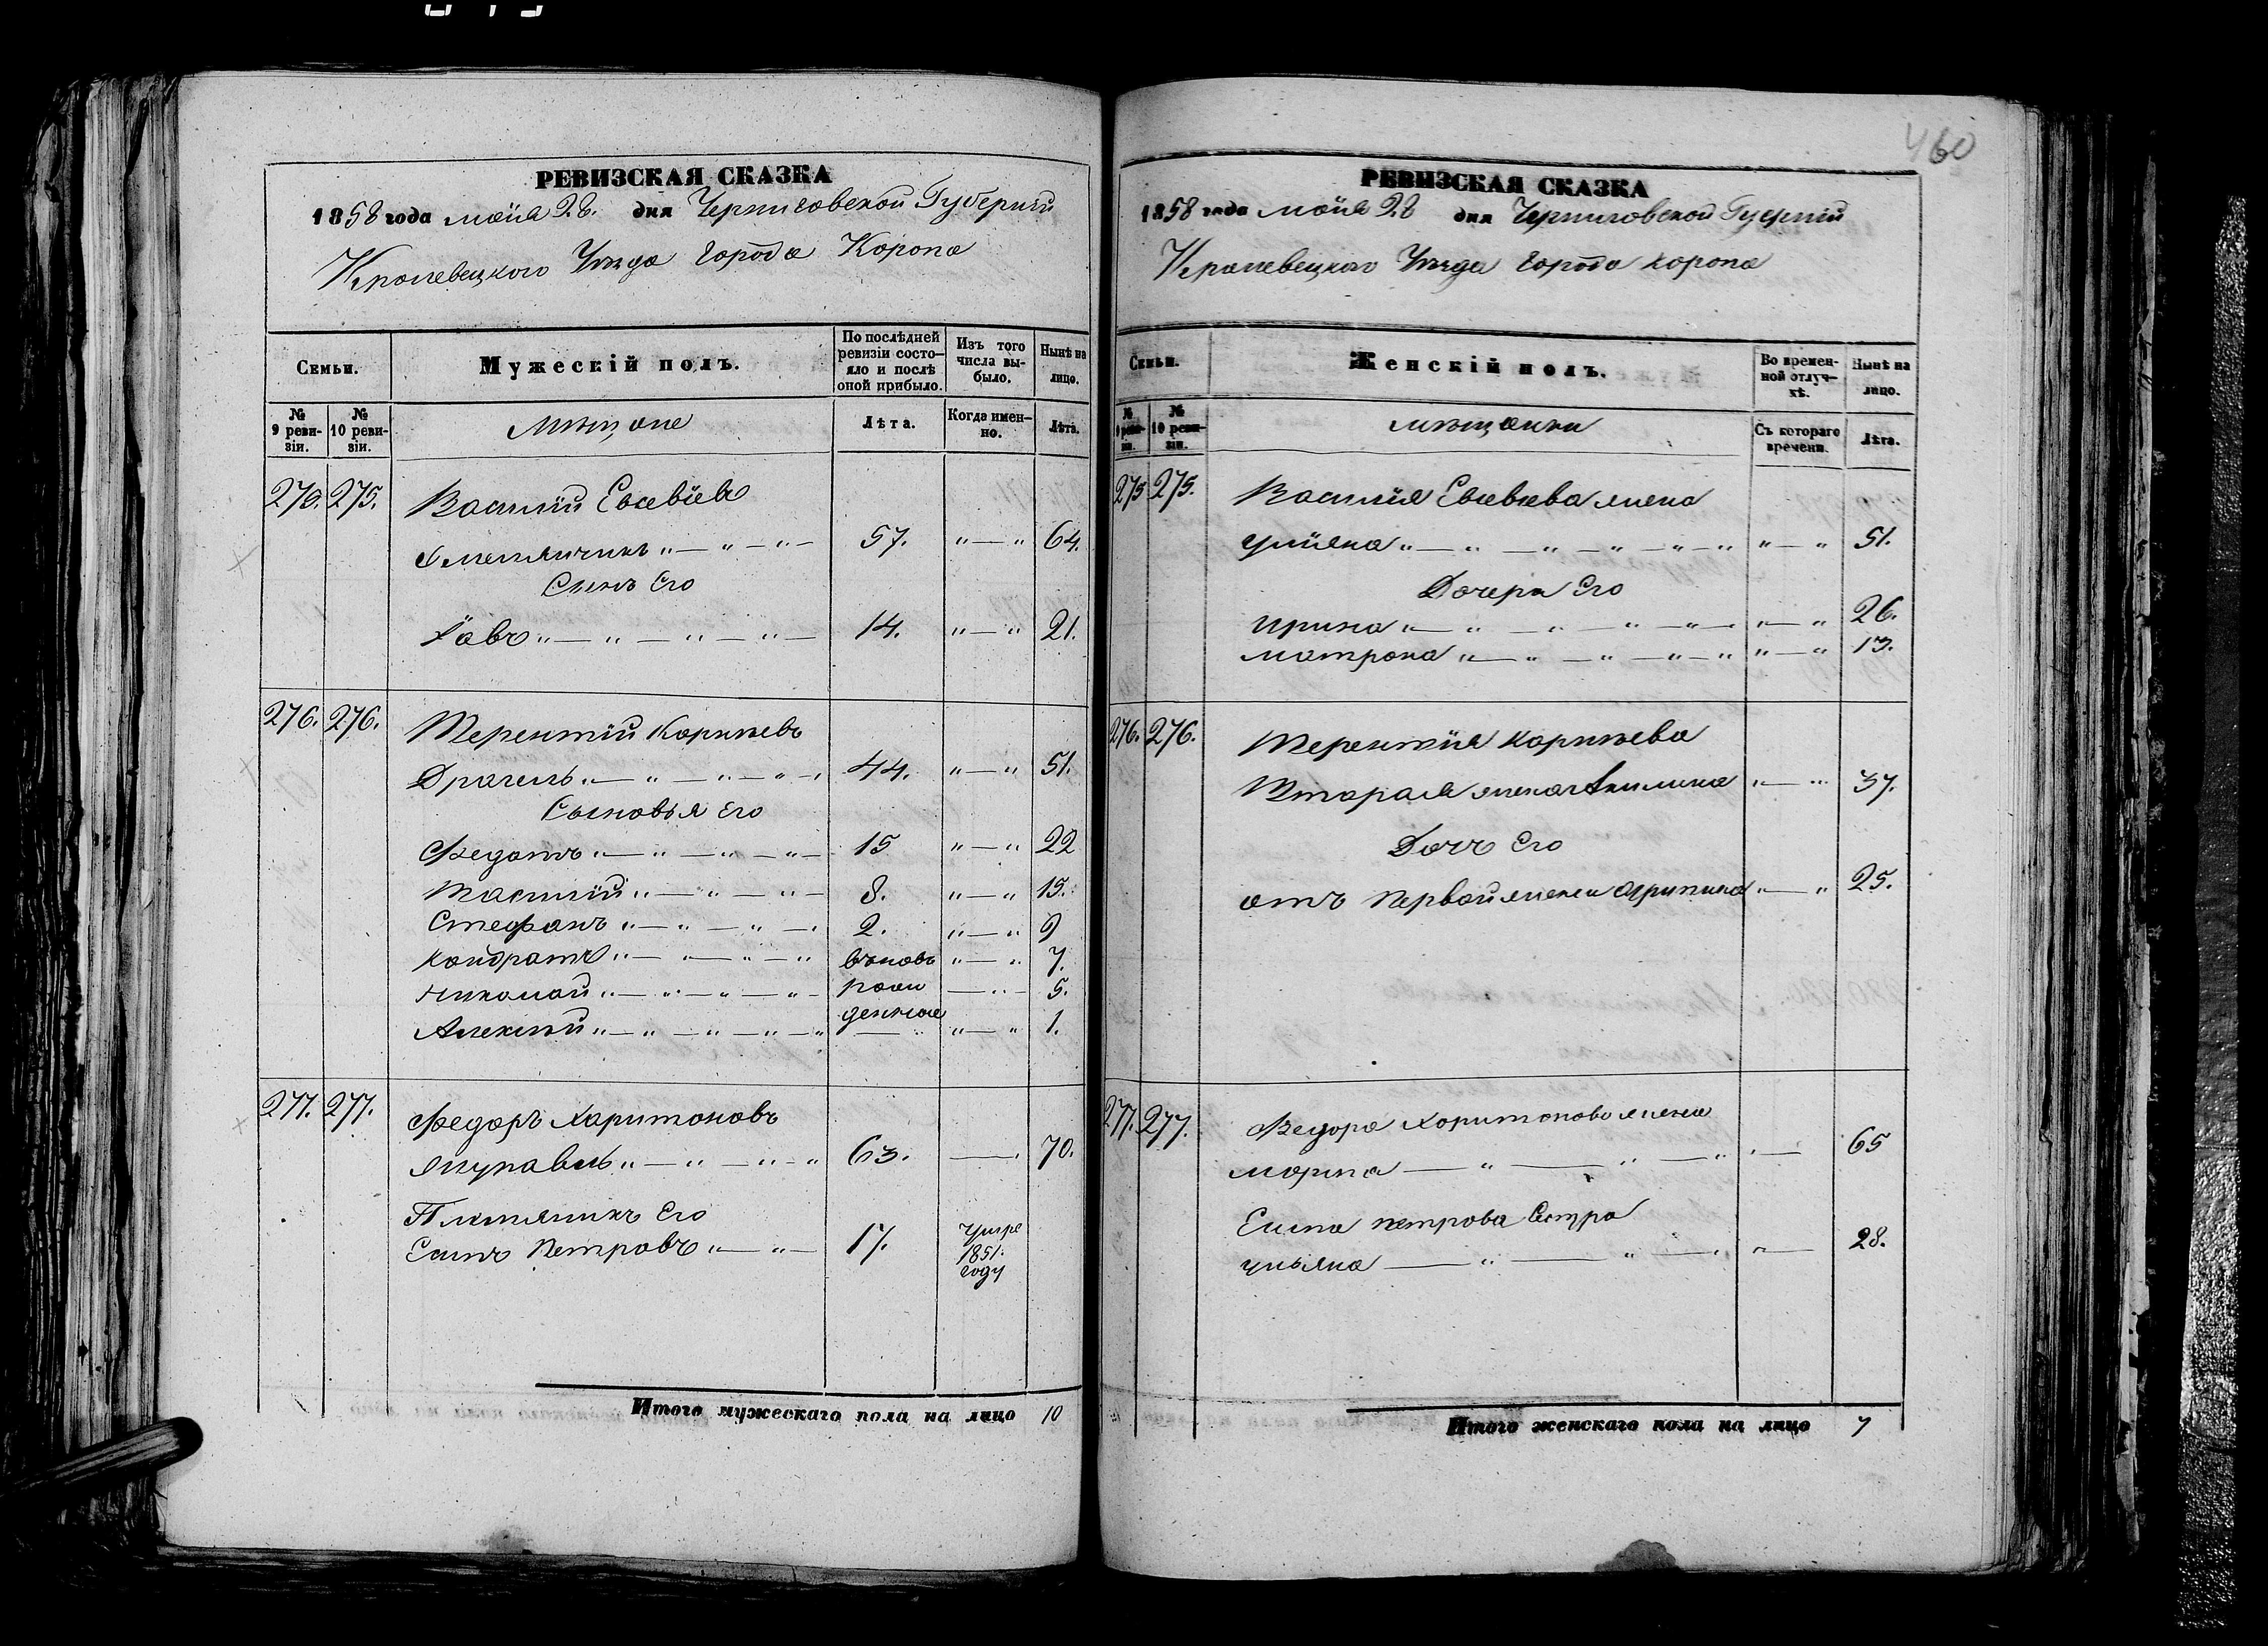 460
РЕВИЗСКАЯ СКАЗКА
1858 года маія 28. дня Черниговской Губерніи
Кролевецкого Уѣзда города Коропа
Семьи.
Мужескій полъ.
По послѣдней ревизіи состо-
яло и послѣ оной прибыло.
Изъ того числа вы-
было.
Нынѣ на лицо.
№ 9 реви-
зіи.
№ 10 реви-
зіи.
Мѣщане
Лѣта.
Когда имен-
но.
Лѣта.
275. 275. Василій Евсевіевъ
57. "—" 64.
Сынъ Его
Іовъ "—"—"—"— 14. "—" 21.
276. 276. Терентій Корнѣевъ
Драгель "—"—"—" 44. "—" 51.
Сыновья Его
Федотъ "—"—"—"— 15 "—" 22
Василій "—"—"— 8. "—" 15.
Стефанъ "—"—"— 2. "—" 9
Кондратъ "—"—"—" вновь "—" 7.
Николай "—"—"—"— рож —"— 5.
Алексѣй "—"—"—"—" денные "—" 1.
277. 277. Федоръ Харитоновъ
Журавель "—"—"—" 63. — 70.
Племянникъ Его
Петровъ "—"— 17. Умре
1851.
году
Итого мужескаго пола на лицо 10
РЕВИЗСКАЯ СКАЗКА
1858 года маія 28 дня Черниговской Губерніи
Кролевецкаго Уѣзда города Коропа
Семьи.
Женскій полъ.
Во времен-
ной отлуч-
кѣ.
Нынѣ на лицо.
№ 9 реви-
зіи.
№ 10 реви-
зіи.
мѣщанки
Съ котораго времени.
Лѣта.
275 275. Василія Евсевіева жена
Уліяна "—"—"—"—"—" "—" 51.
Дочери Его
Ирина "—"—"—"—"— "—" 26.
Матрона "—"—"—"—" "—" 13.
276. 276. Терентія Корнѣева
Вторая жена Акилина "—" 37.
Дочь Его
отъ первой жены Агрипина "—" 25.
277. 277. Федора Харитонова жена
Марина —"—"—" "— 65
Петрова Сестра
Ульяна —"—"—" "— 28.
Итого женскаго пола на лицо 7